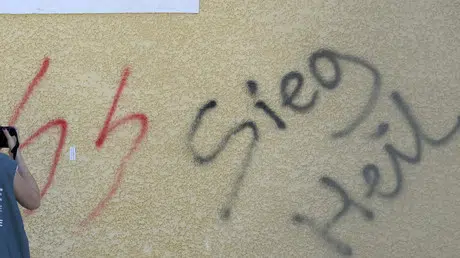 SS
Sieg
Heil